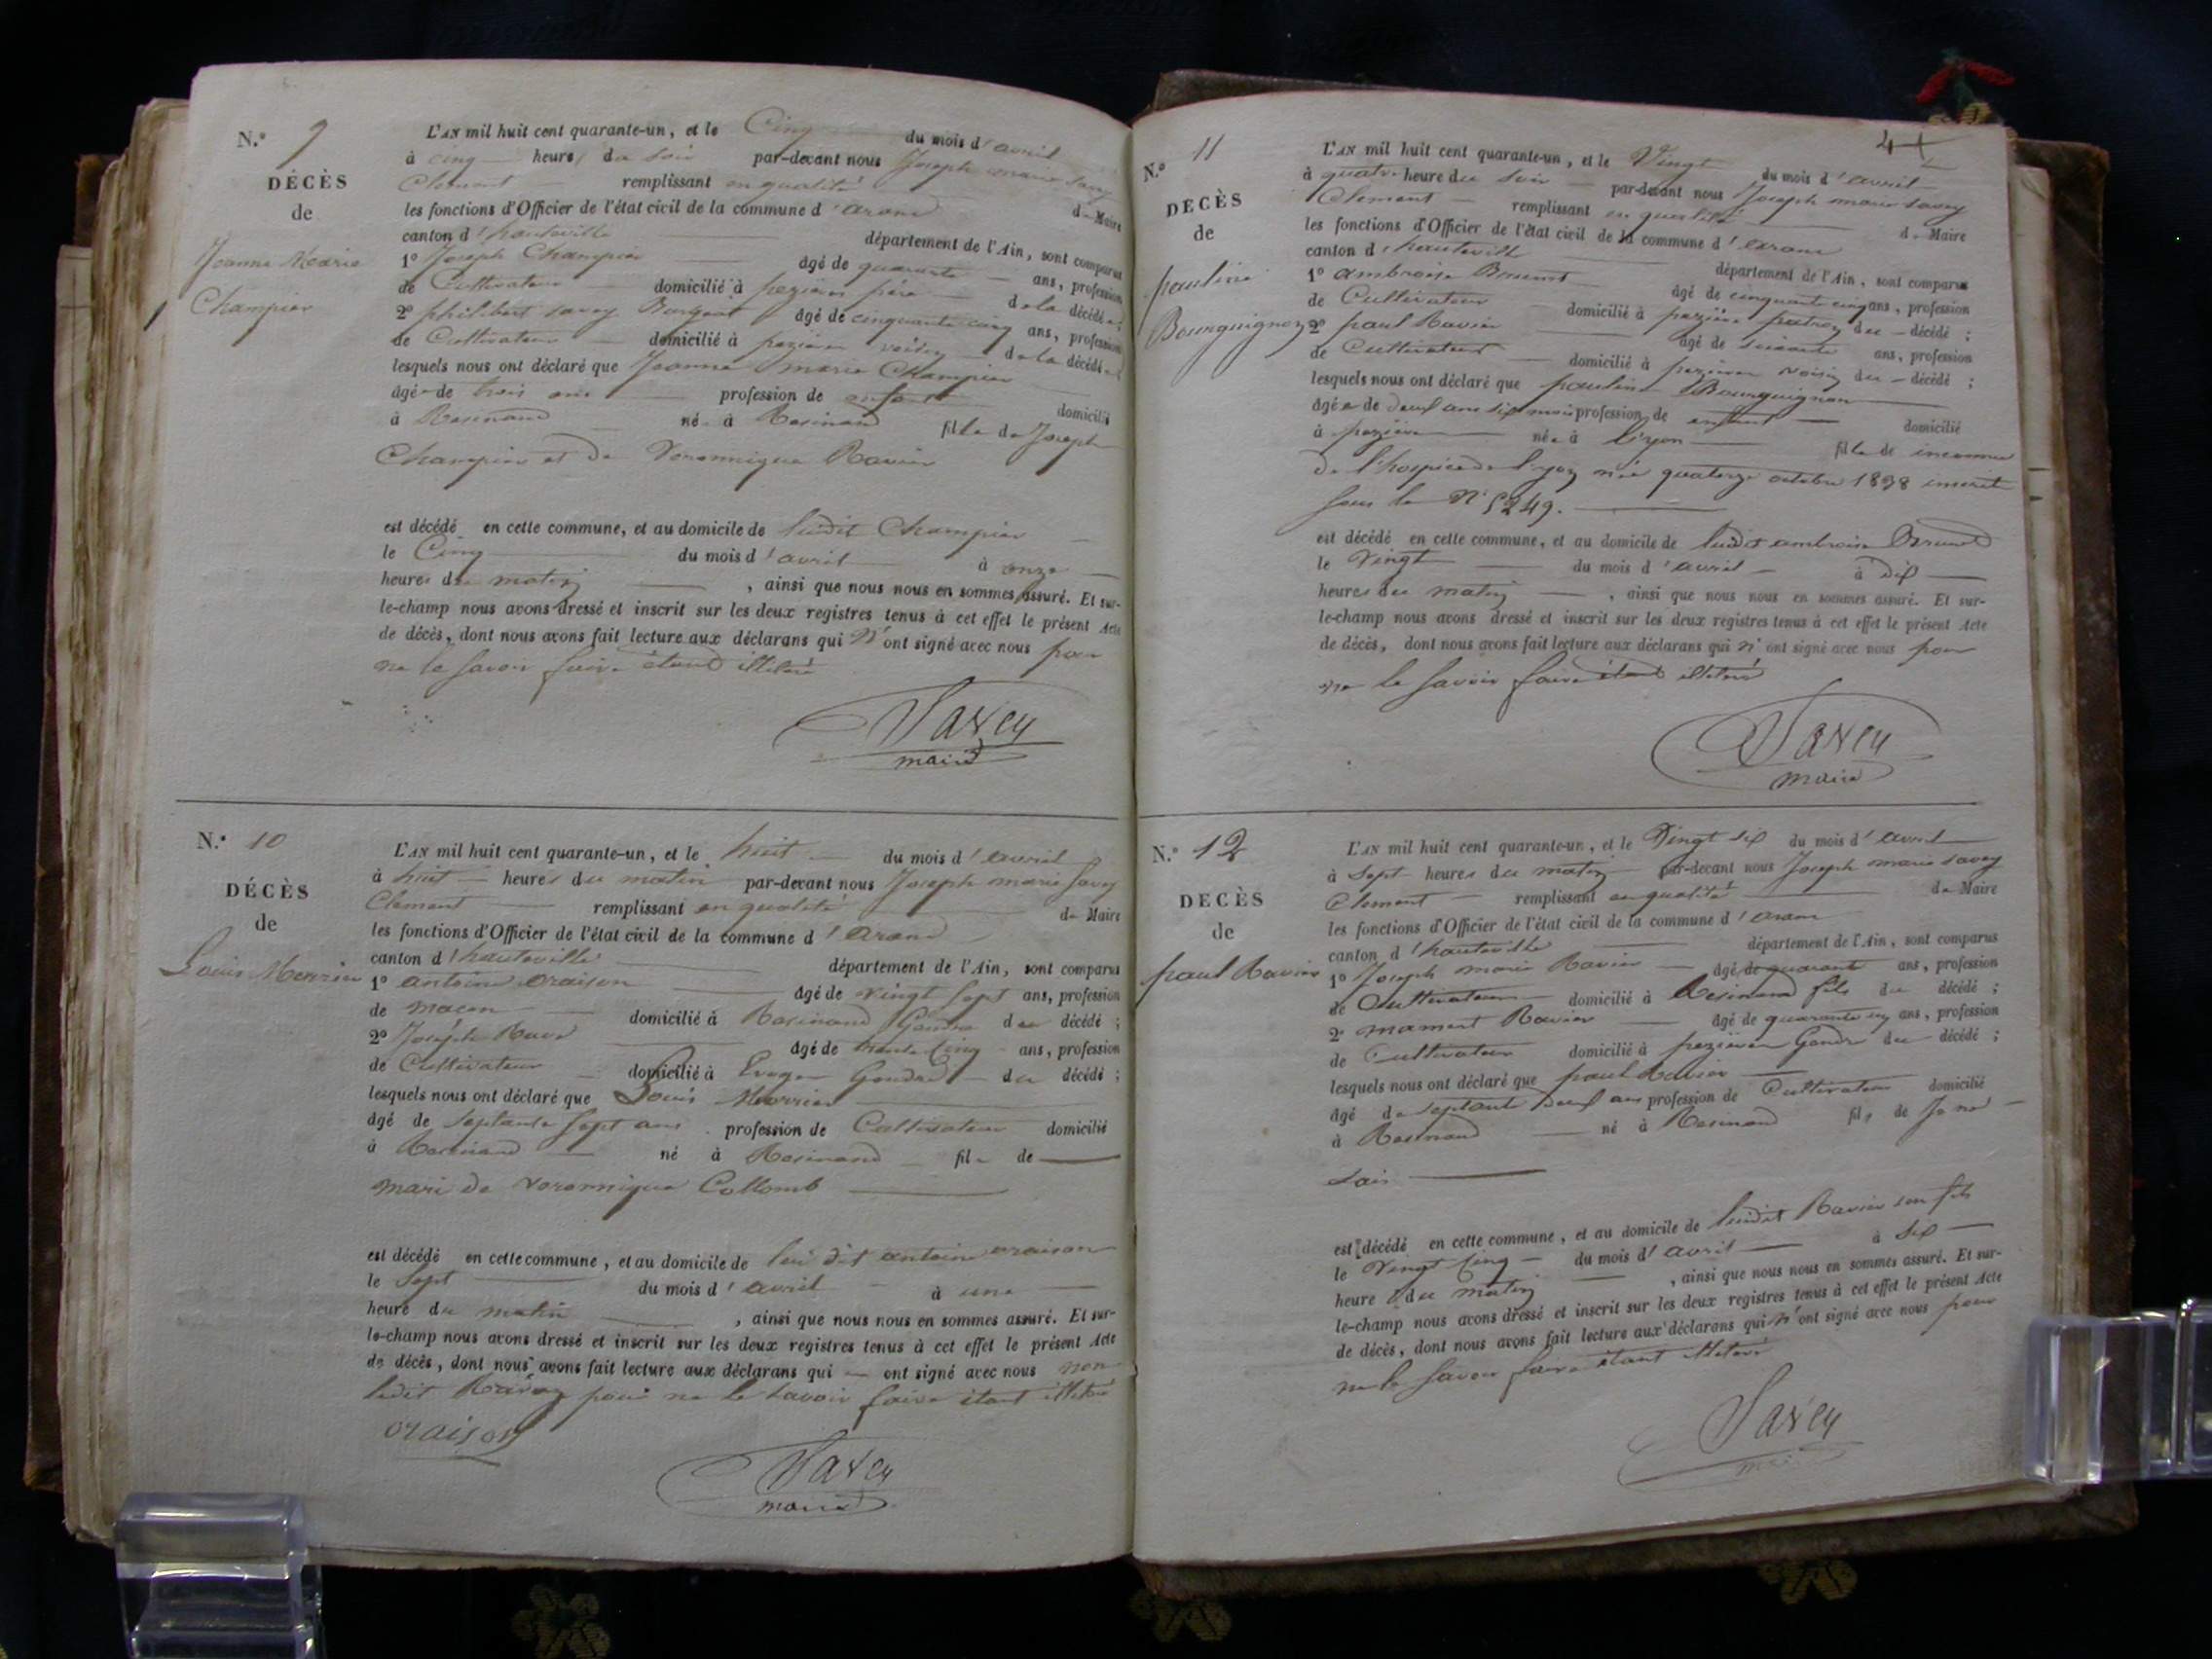 N.° 9
DÉCÈS
de
Jeanne Marie
Champier
L'AN mil huit cent quarante-un, et le Cinq du mois d'avril
à cinq heures du soir par-devant nous Joseph marie savey
Clement remplissant en qualité de Maire
les fonctions d'Officier de l'état civil de la commune d'arand
canton d'hauteville département de l'Ain, sont comparus
1° Joseph Champier âgé de quarante ans, profession
de Cultivateur domicilié à pezieres père de la décédée;
2° philibert savey âgé de cinquante cinq ans, profession
de Cultivateur domicilié à pezieres voisin de la décédée
lesquels nous ont déclaré que Jeanne marie Champier
âgée de trois ans profession de enfant domicilié
à Resinand née à Resinand fille de Joseph
Champier et de Veronnique Ravier
est décédé en cette commune, et au domicile de ludit Champier
le Cinq du mois d'avril à onze
heures du matin, ainsi que nous nous en sommes assuré. Et sur-
le-champ nous avons dressé et inscrit sur les deux registres tenus à cet effet le présent Acte
de décès, dont nous avons fait lecture aux déclarans qui n'ont signé avec nous pour
ne le savoir faire étant illeteré
Savey
maire
N.° 10
DÉCÈS
de
Louis Merrier
L'AN mil huit cent quarante-un, et le huit du mois d'avril
à huit heures du matin par-devant nous Joseph marie savey
Clement remplissant en qualité de Maire
les fonctions d'Officier de l'état civil de la commune d'arand
canton d'hauteville département de l'Ain, sont comparus
1° antoine oraison âgé de vingt sept ans, profession
de macon domicilié à Resinand Gendre du décédé;
2° Joseph âgé de trente cinq ans, profession
de Cultivateur domicilié à Gendre du décédé;
lesquels nous ont déclaré que Louis Merrier
âgé de septante sept ans profession de Cultivateur domicilié
à Resinand né à Resinand fils de
mari de veronnique Collomb
est décédé en cette commune, et au domicile de lui dit antoine oraison
le Sept du mois d'avril à une
heure du matin, ainsi que nous nous en sommes assuré. Et sur-
le-champ nous avons dressé et inscrit sur les deux registres tenus à cet effet le présent Acte
de décès, dont nous avons fait lecture aux déclarans qui ont signé avec nous non
ledit pour ne le savoir faire étant illeteré
oraison
Savey
maire
4
N.° 11
DÉCÈS
de
pauline
Bourguignon
L'AN mil huit cent quarante-un, et le Vingt du mois d'avril
à quatre heure du soir par-devant nous Joseph marie savey
Clement remplissant en qualité de Maire
les fonctions d'Officier de l'état civil de la commune d'arand
canton d'hauteville département de l'Ain, sont comparus
1° ambroise Brunet âgé de cinquante cinq ans, profession
de Cultivateur domicilié à peziere du décédé;
2° paul Ravier âgé de soixante ans, profession
de Cultivateur domicilié à pezieres voisin du décédé;
lesquels nous ont déclaré que pauline Bourguignon
âgée de deux ans six mois profession de enfant domicilié
à peziere née à Liyon fille de inconnue
de l'hospice de Liyon née quatorze octobre 1838 inscrit
sous le N° 5249.
est décédé en cette commune, et au domicile de ludit ambroise Brunet
le Vingt du mois d'avril à dix
heures du matin, ainsi que nous nous en sommes assuré. Et sur-
le-champ nous avons dressé et inscrit sur les deux registres tenus à cet effet le présent Acte
de décès, dont nous avons fait lecture aux déclarans qui n'ont signé avec nous pour
ne le savoir faire étant illeteré
Savey
maire
N.° 12
DÉCÈS
de
paul Ravier
L'AN mil huit cent quarante-un, et le Vingt six du mois d'avril
à Sept heures du matin par-devant nous Joseph marie savey
Clement remplissant en qualité de Maire
les fonctions d'Officier de l'état civil de la commune d'arand
canton d'hauteville département de l'Ain, sont comparus
1° Joseph marie Ravier âgé de quarante ans, profession
de Cultivateur domicilié à Resinand fils du décédé;
2° mamert Ravier âgé de quarante un ans, profession
de Cultivateur domicilié à pezieres Gendre du décédé;
lesquels nous ont déclaré que paul Ravier
âgé de septante deux ans profession de Cultivateur domicilié
à Resinand né à Resinand fils de Je ne
sais
est décédé en cette commune, et au domicile de ludit Ravier son fils
le Vingt cinq du mois d'avril à six
heure du matin, ainsi que nous nous en sommes assuré. Et sur-
le-champ nous avons dressé et inscrit sur les deux registres tenus à cet effet le présent Acte
de décès, dont nous avons fait lecture aux déclarans qui n'ont signé avec nous pour
ne le savoir faire étant illeteré
Savey
maire